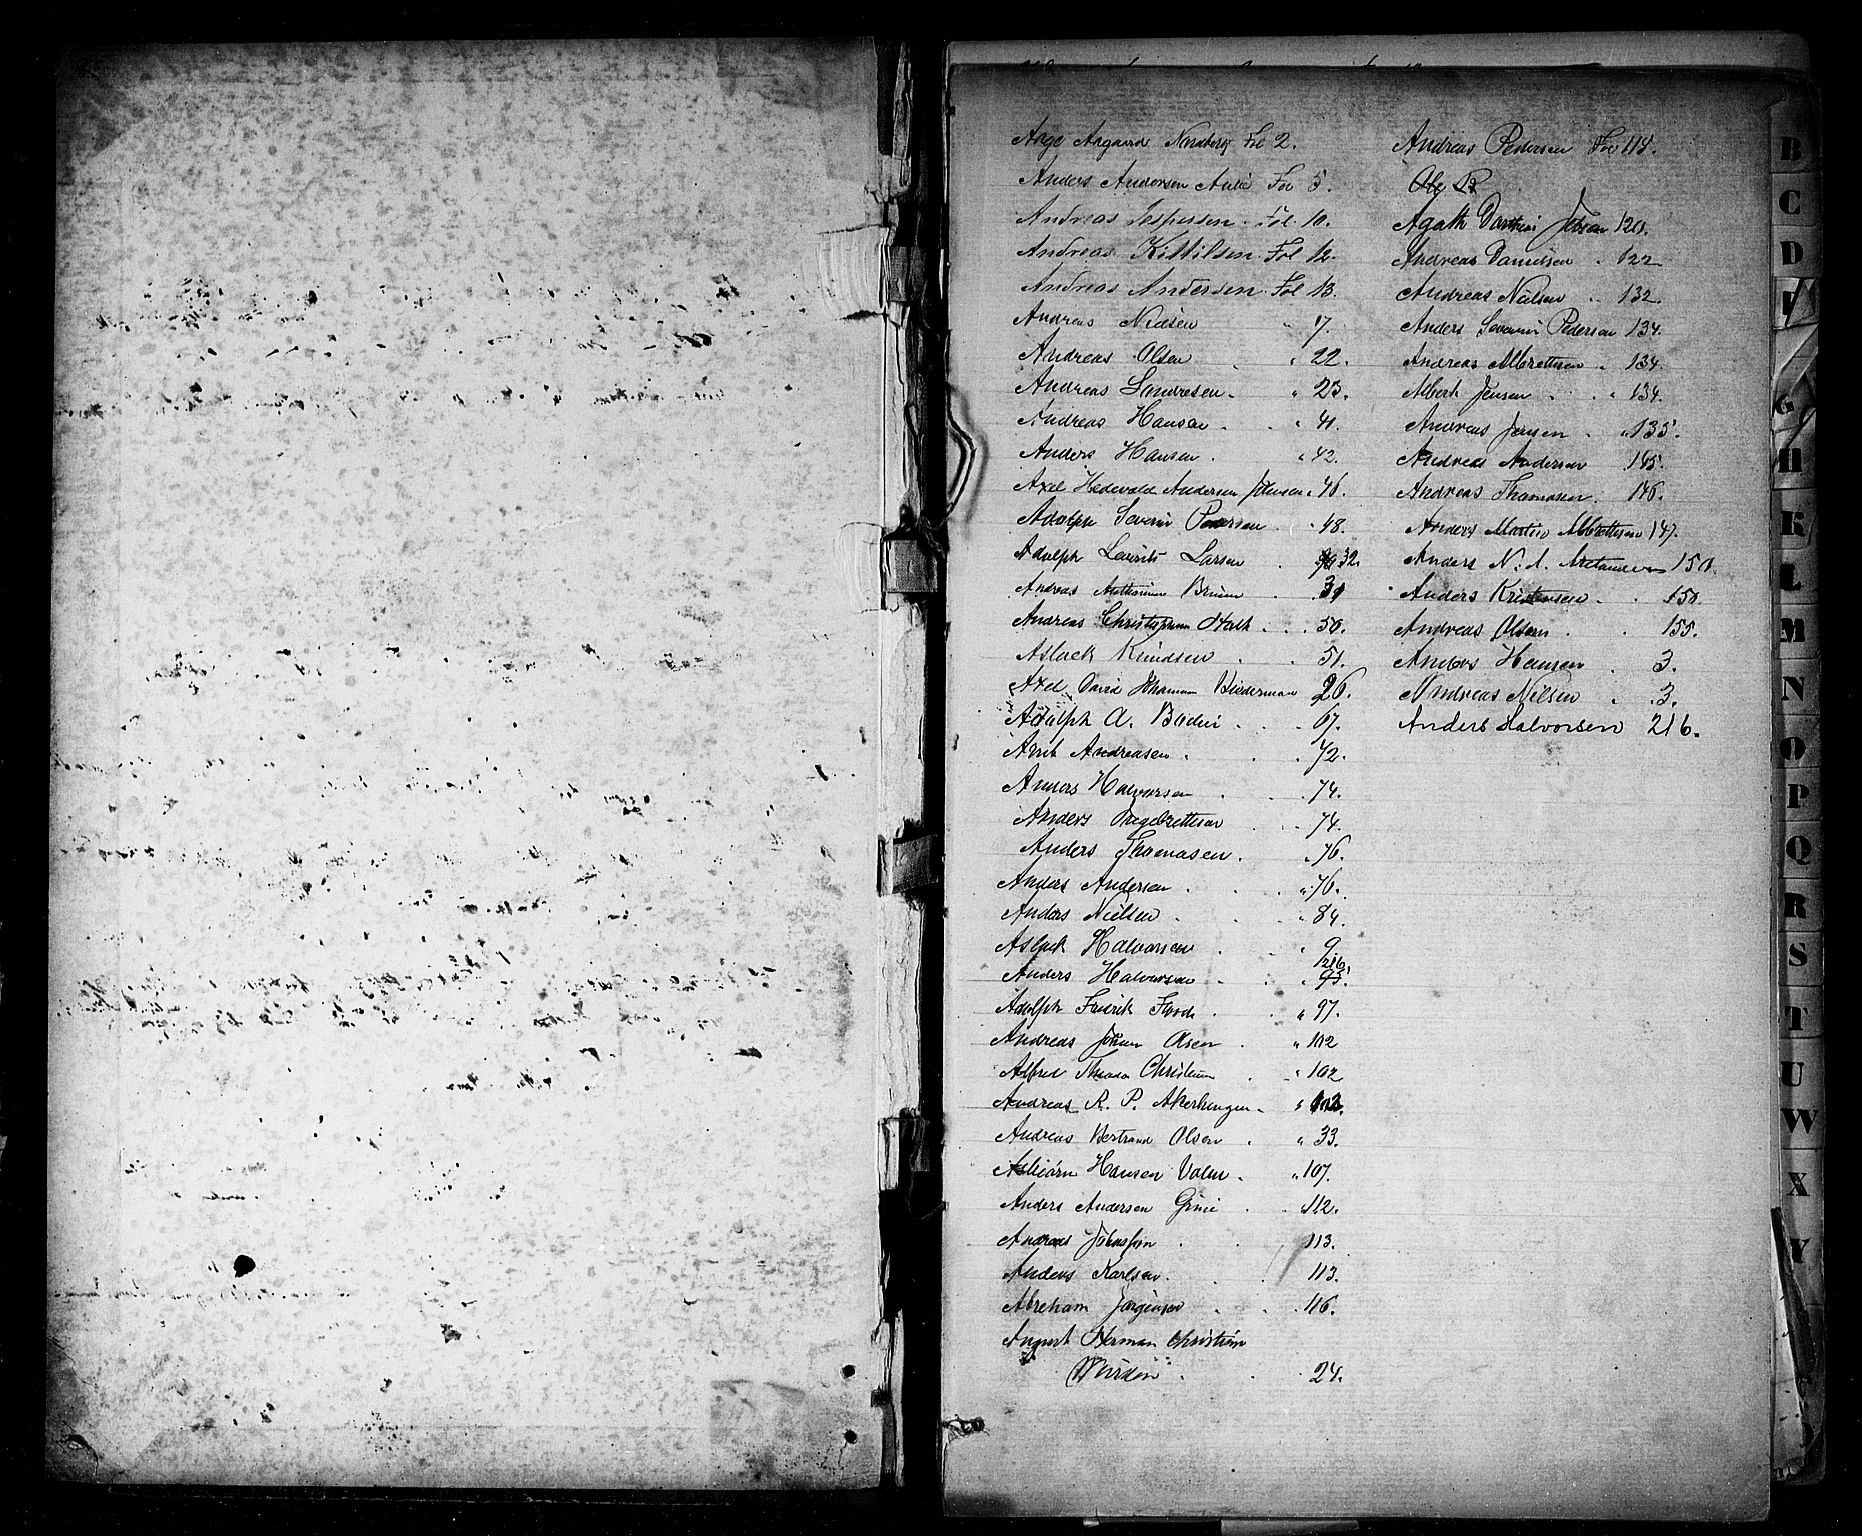 Aage Aagaard Nordberg Fol 2.
Anders Andersen Fol 5.
Andreas Jespersen Fol 10.
Andreas Kittilsen Fol 12.
Andreas Andersen Fol 13.
Andreas Nielsen " 17.
Andreas Olsen " 22.
Andreas " 23.
Andreas Hansen " 41.
Anders Hansen " 42.
Axel Andersen Johnsen " 46.
Adolph Severin Pedersen " 48.
Adolph Laurits Larsen 32.
Andreas Bruun 31
Andreas Christophersen 50.
Aslack Knudsen 51.
Axel David Biederman 26.
Adolph A. Badin 67.
Arnt Andreasen 72.
Anders Halvorsen 74.
Anders Ingebrettsen 74.
Anders Thomasen 76.
Anders Andersen " 76.
Anders Nielsen " 84.
Aslack Halvorsen " 9
Anders Halvorsen 216. 95.
Adolph Fredrik Floode " 97.
Andreas Johan Olsen " 102
Alfred Theodor " 102
Andreas R. P. " 102.
Andreas Bertrand Olsen " 33.
Asbiörn Hansen " 107.
Anders Andersen 112.
Andreas 113.
Anders Karlsen 113.
Abraham Jørgensen 116.
August Herman Christian
24.
Andreas Pedersen Fol 118.
Agath 120.
Andreas Danielsen " 122
Andreas Nielsen " 132.
Anders Severin Pedersen 134.
Andreas Albrettsen " 134.
Albert Jensen " 134.
Andreas Jensen " 135.
Andreas Andersen 145.
Andreas Thomasen 146.
Anders Martin Albrettsen 147.
Anders N. A. 150.
Anders Kristensen 150.
Andreas Olsen 155.
Anders Hansen 3.
Andreas Nilsen 3.
Anders Halvorsen 216.
B
C
D
G
H
K
L
M
N
O
P
Q
R
S
T
U
W
X
Y